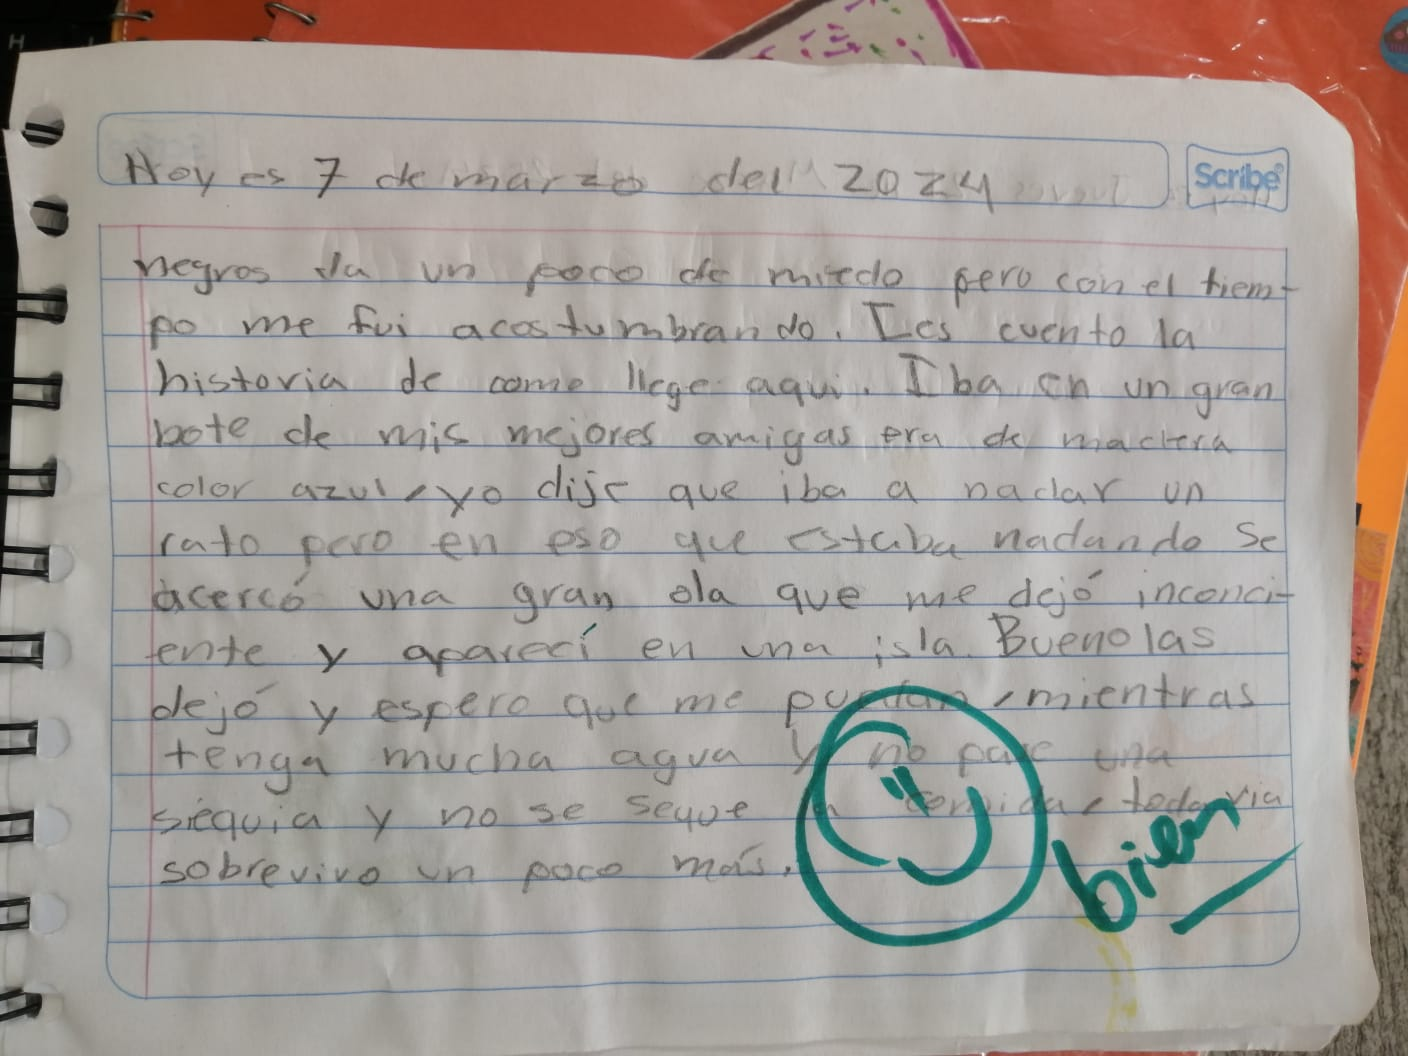 Hoy es 7 de marzo del 2024
Scribe
negros da un poco de miedo pero con el tiem-
po me fui acostumbrando. Les cuento la
historia de como llege aqui. Iba en un gran
bote de mis mejores amigas era de madera
color azul, yo dije que iba a nadar un
rato pero en eso que estaba nadando se
acercó una gran ola que me dejó inconci-
ente y aparecí en una isla. Bueno las
dejó y espero que me puedan, mientras
tenga mucha agua y no pase una
siequia y no se seque la comida, todavia
sobrevivo un poco más.
bien